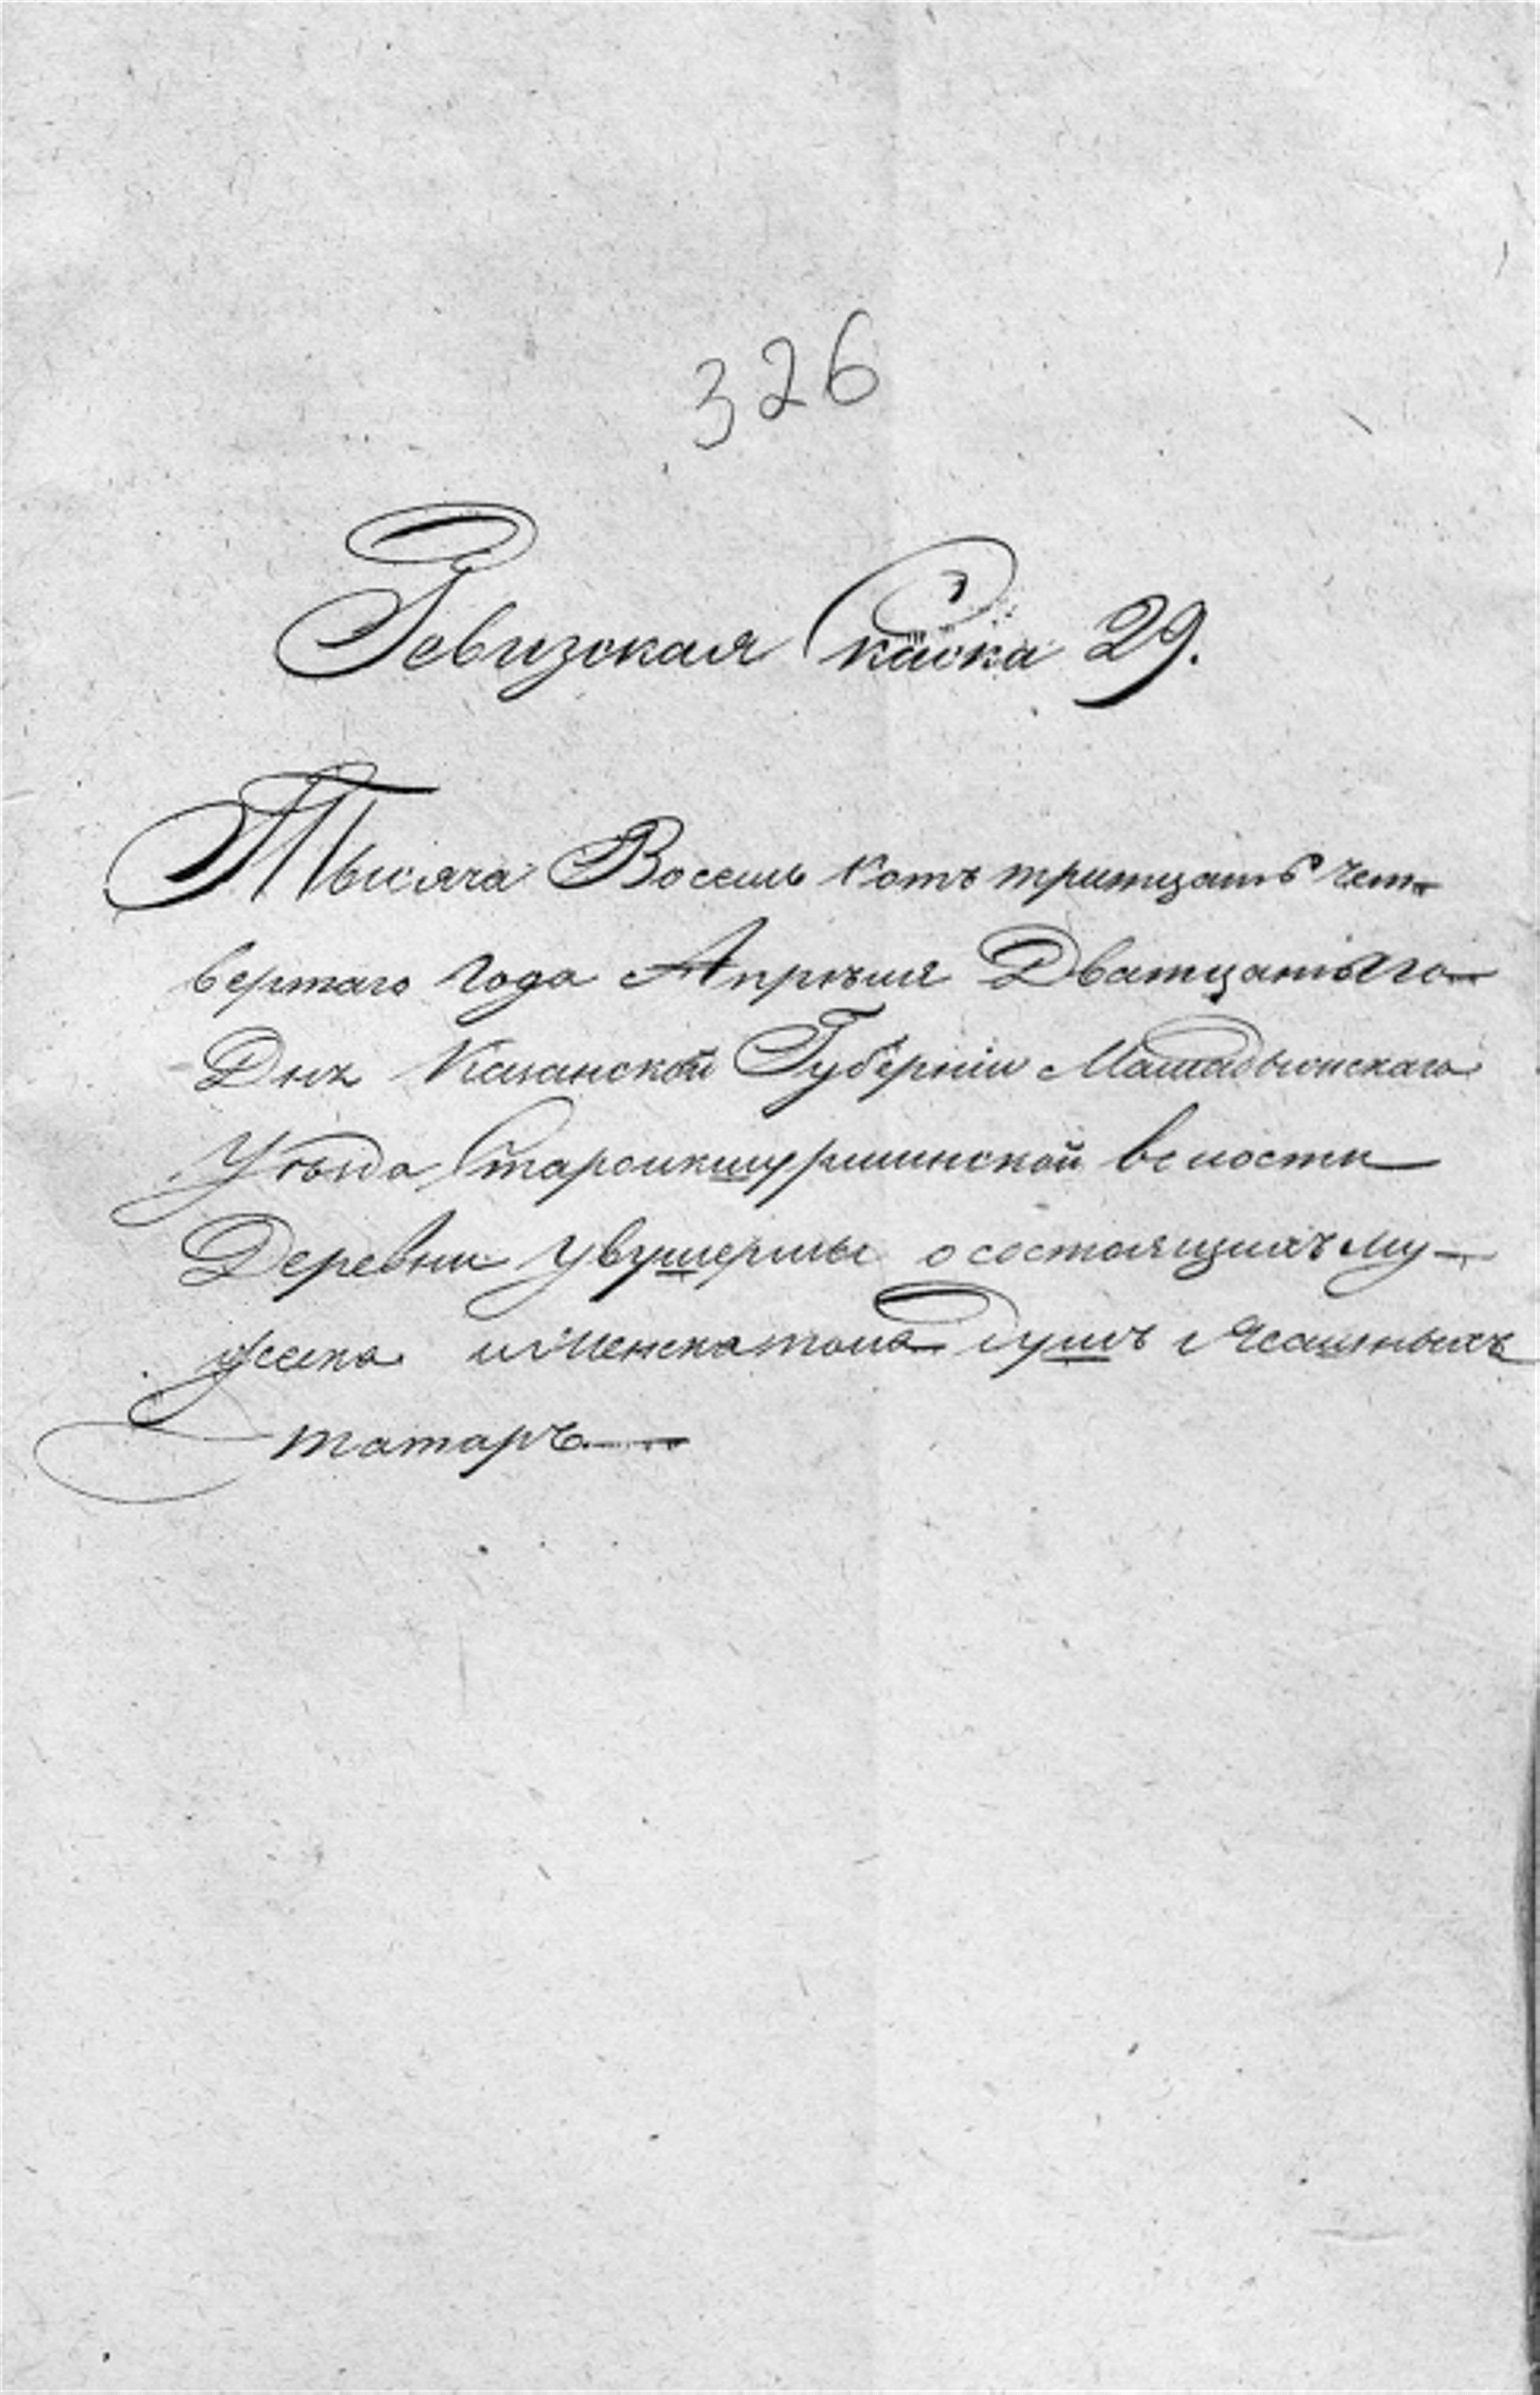 326
Ревизская Скаска 29.
Тысяча Восемь Сотъ тритцать чет-
вертаго Года Апреля Дватцатаго
Дня Казанской Губерніи Мамадышскаго
Уезда Староикшурминской волости
Деревни Увушермы о состоящихъ му-
жеска и женска пола душъ Ясашныхъ
татаръ.